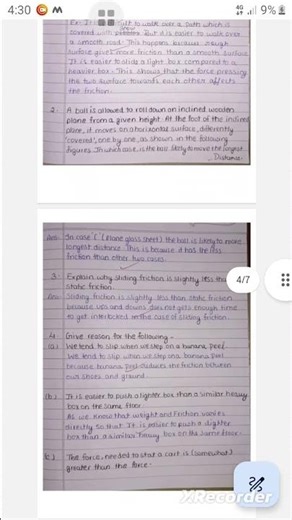 4:30
4G
9%
covered with snow But it is easier to walk over
a smooth road. This happens because rough
surface gives more friction than a smooth surface.
It is easier to slide a light box compared to a
heavier box. This shows that the force pressing
the two surface towards each other affects
the friction.
2. A ball is allowed to roll down an inclined wooden
plane from a given height. At the foot of the inclined
plane, it moves on a horizontal surface, differently
'covered', one by one, as shown in the following
figures. In which case, is the ball likely to move the longest
Distance.
Ans In case 'c' (Plane glass sheet) the ball is likely to move
longest distance. This is because it has the less
friction than other two cases.
3. Explain why sliding friction is slightly less than
static friction.
Ans Sliding friction is slightly less than static friction
because ups and downs does not gets enough time
to get interlocked in the case of sliding friction.
4. Give reason for the following -
(a) We tend to slip when we step on a banana peel.
We tend to slip when we step on a banana peel
because banana peel reduces the friction between
our shoes and ground.
(b) It is easier to push a lighter box than a similar heavy
box on the same floor.
As we know that weight and friction varies
directly so that It is easier to push a lighter
box than a similar heavy box on the same floor.
(c) The force, needed to start a cart is (somewhat)
greater than the force
4/7
XRecorder